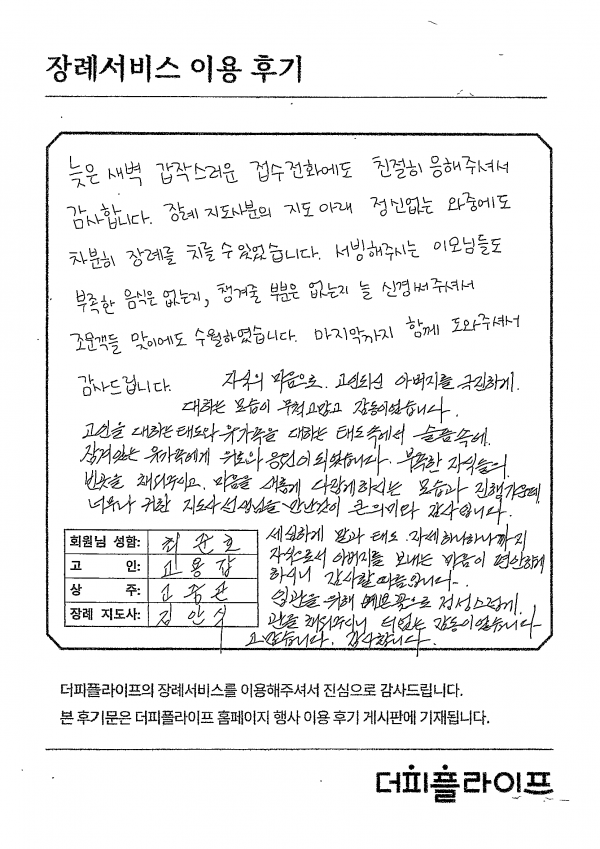 장례서비스 이용 후기
늦은 새벽 갑작스러운 접수전화에도 친절히 응해주셔서
감사합니다. 장례 지도사분의 지도 아래 정신없는 와중에도
차분히 장례를 치를 수 있었습니다. 서빙해주시는 이모님들도
부족한 음식은 없는지, 챙겨줄 부분은 없는지 늘 신경써주셔서
조문객들 맞이에도 수월하였습니다. 마지막까지 함께 도와주셔서
감사드립니다. 자식의 마음으로 고인되신 아버지를 극진하게.
대하는 모습이 무척고맙고 감동이었습니다.
고인을 대하는태도와 유가족을 대하는 태도속에서 슬픔속에.
잠겨있는 유가족에게 위로와 응원이 되었습니다. 부족한 자식들의
빈곳을 채워주시고. 마음을 새롭게 다잡게하시는 모습과 진행가운데
너무나 귀한 지도사선생님을 만난것이 큰의미라 감사합니다.
세심하게 말과 태도. 자세하나하나까지
자식으로서 아버지를 보내는 마음이 편안하게
하시니 감사할따름입니다.
입관을 위해 예쁜꽃으로 정성스럽게.
관을 채워주시니 더없는 감동이었습니다
고맙습니다. 감사합니다.
회원님 성함: 최윤호
고 인: 고용갑
상 주:
장례 지도사: 김안식
더피플라이프의 장례서비스를 이용해주셔서 진심으로 감사드립니다.
본 후기문은 더피플라이프 홈페이지 행사 이용 후기 게시판에 기재됩니다.
더피플라이프